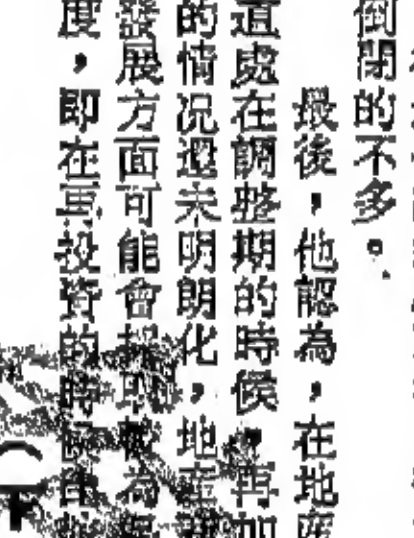 倒閉的不多。
最後，他認為，在地產
道處在調整期的時候，再加
的情况還未明朗化，地產
發展方面可能會採取較為
度，即在再投資的時候